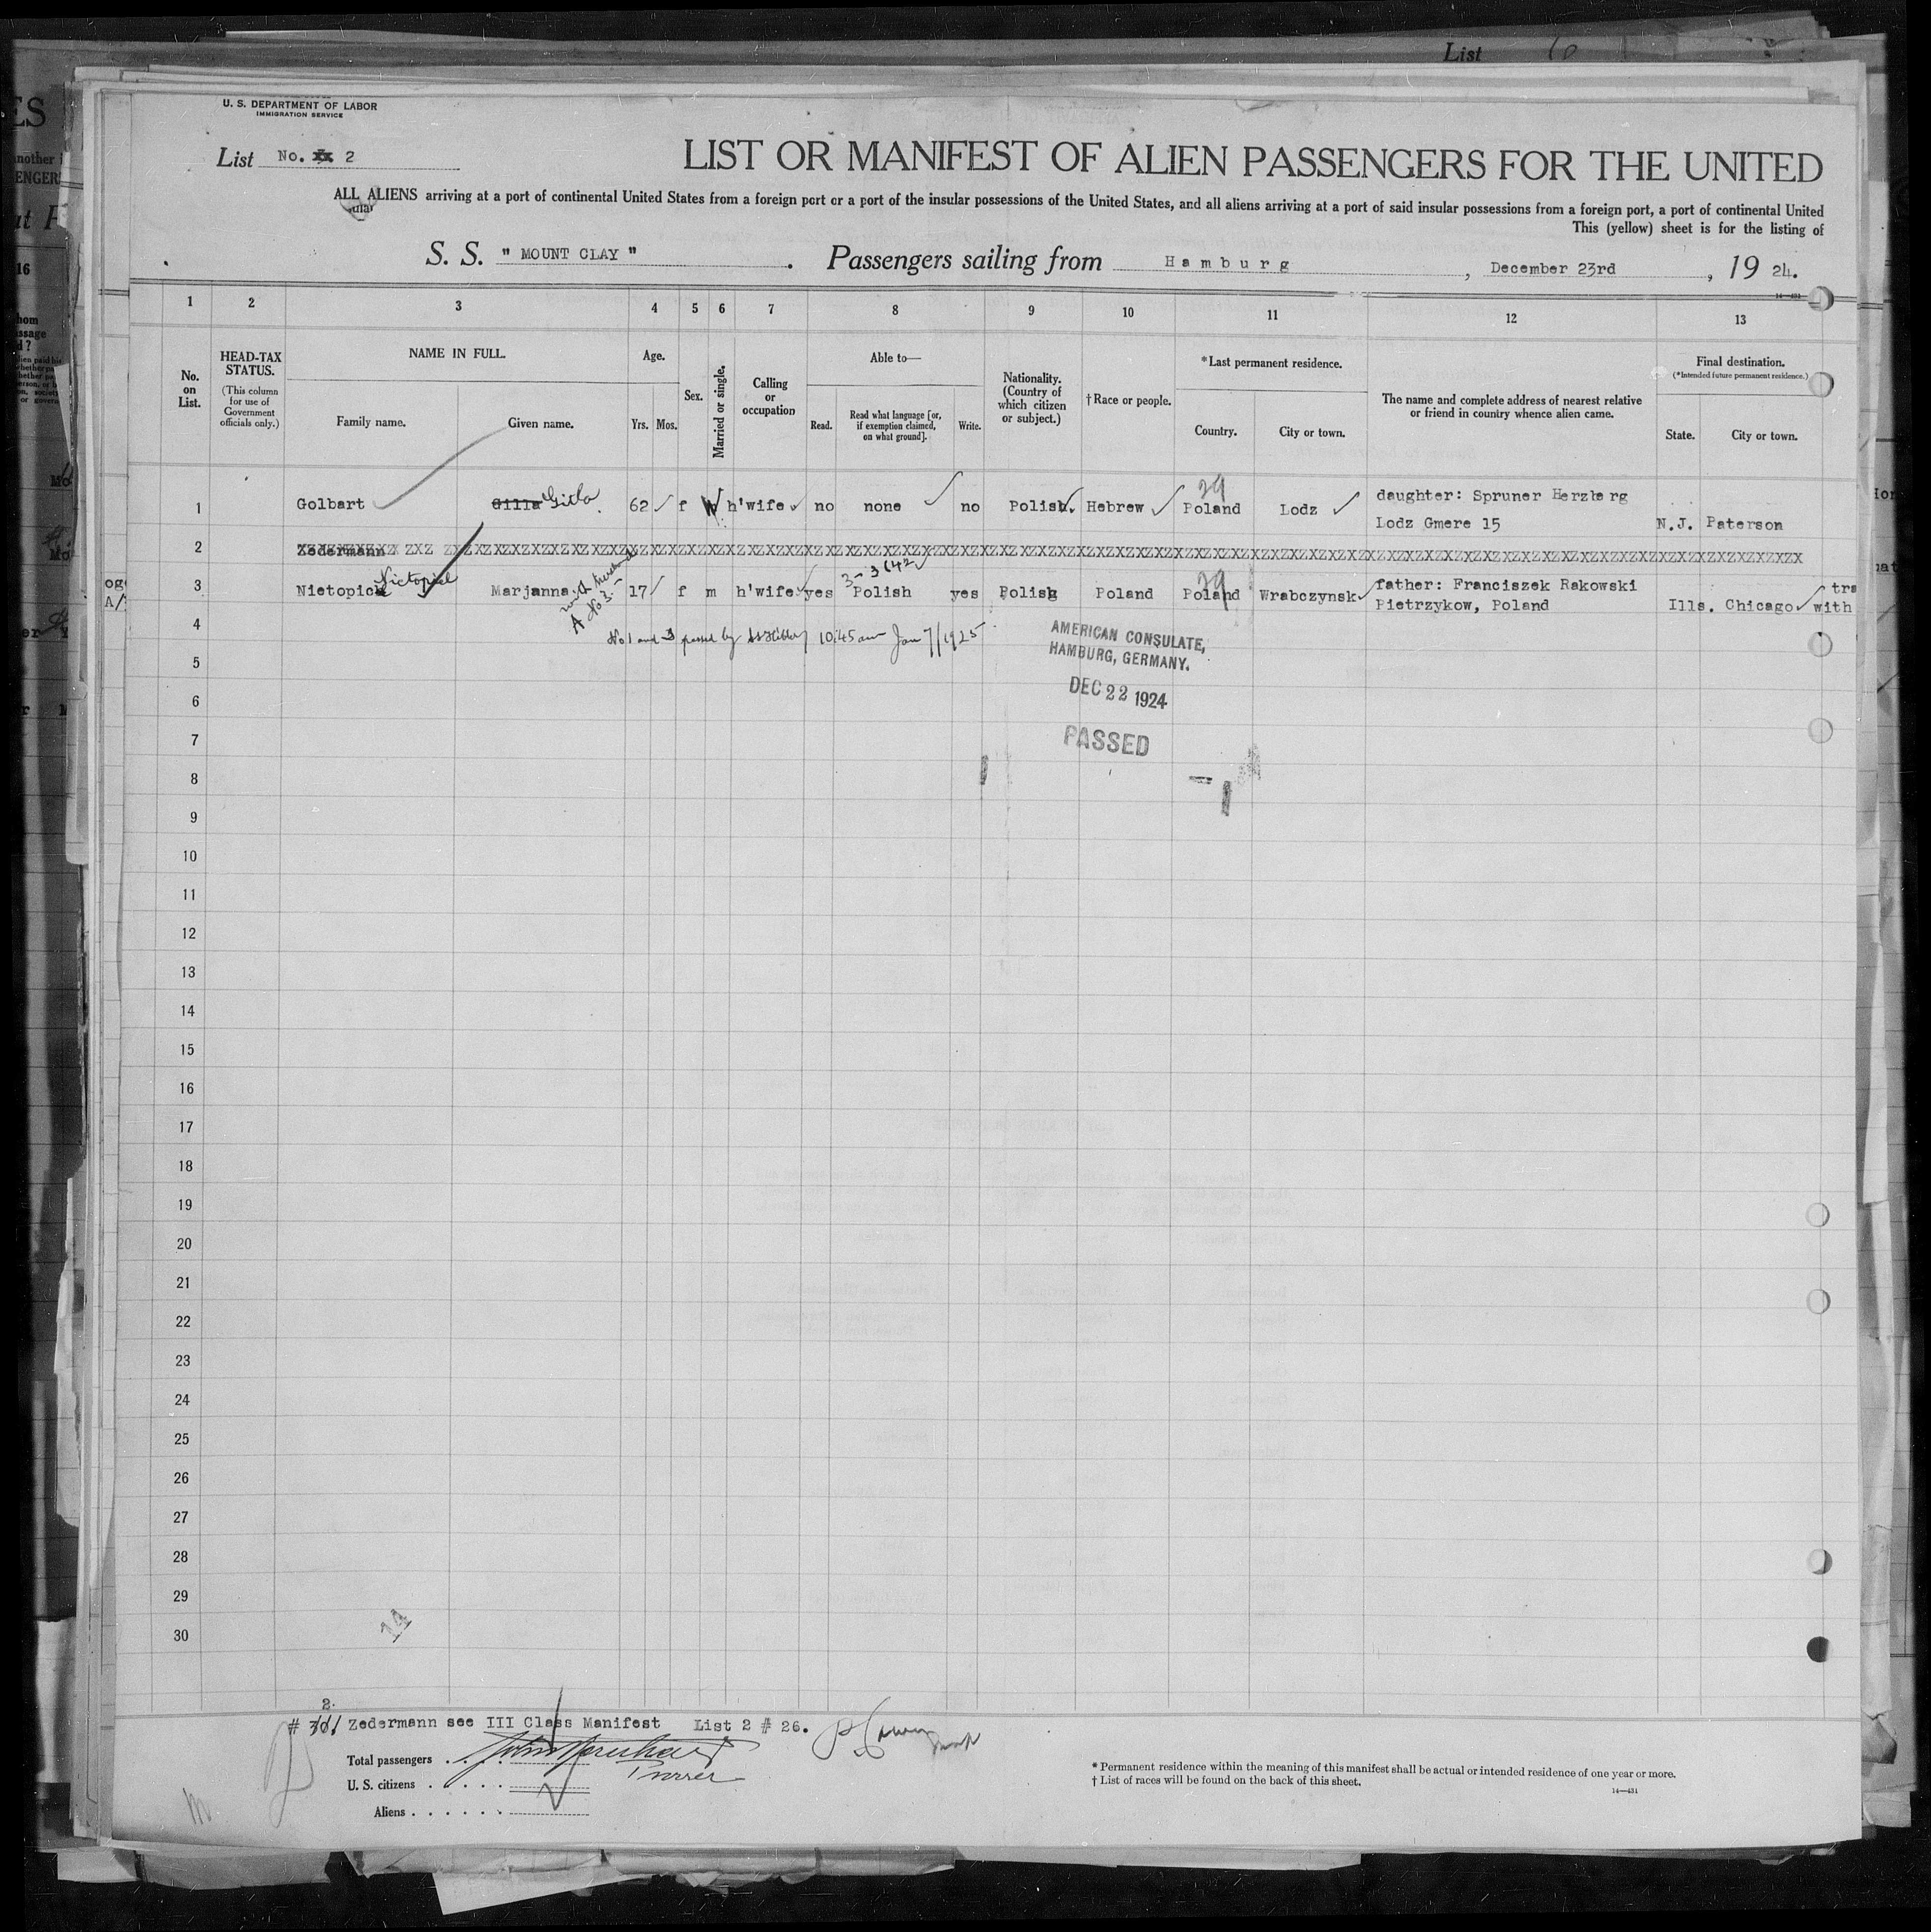 List
U. S. DEPARTMENT OF LABOR
IMMIGRATION SERVICE
List No. 2
LIST OR MANIFEST OF ALIEN PASSENGERS FOR THE UNITED
ALL ALIENS arriving at a port of continental United States from a foreign port or a port of the insular possessions of the United States, and all aliens arriving at a port of said insular possessions from a foreign port, a port of continental United
This (yellow) sheet is for the listing of
S. S. " MOUNT CLAY " . Passengers sailing from Hamburg , December 23rd , 19 24.
14—431
1 2 3 4 5 6 7 8 9 10 11 12 13
No. on List.
HEAD-TAX STATUS.
(This column for use of Government officials only.)
NAME IN FULL.
Family name. Given name.
Age.
Yrs. Mos.
Sex.
Married or single.
Calling or occupation
Able to—
Read. Read what language [or, if exemption claimed, on what ground]. Write.
Nationality. (Country of which citizen or subject.)
† Race or people.
*Last permanent residence.
Country. City or town.
The name and complete address of nearest relative or friend in country whence alien came.
Final destination.
(*Intended future permanent residence.)
State. City or town.
1 Golbart Gilla Gitla 62 f W h'wife no none no Polish. Hebrew 29 Poland Lodz daughter: Spruner Herzberg
Lodz Gmere 15 N.J. Paterson
2 Zedermann
3 Nietopick Nietopiel Marjanna with husband A No 3 17 f m h'wife yes 3-3642 Polish yes Polish Poland 29 Poland Wrabczynsk father: Franciszek Rakowski
Pietrzykow, Poland Ills. Chicago with
4 No 1 and 3 passed by 10:45 am Jan 7/1925
AMERICAN CONSULATE,
HAMBURG, GERMANY.
DEC 22 1924
PASSED
5
6
7
8
9
10
11
12
13
14
15
16
17
18
19
20
21
22
23
24
25
26
27
28
29
30
14
# 2. Zedermann see III Class Manifest List 2 # 26.
Total passengers
Purser
U. S. citizens
Aliens
* Permanent residence within the meaning of this manifest shall be actual or intended residence of one year or more.
† List of races will be found on the back of this sheet.
14—431